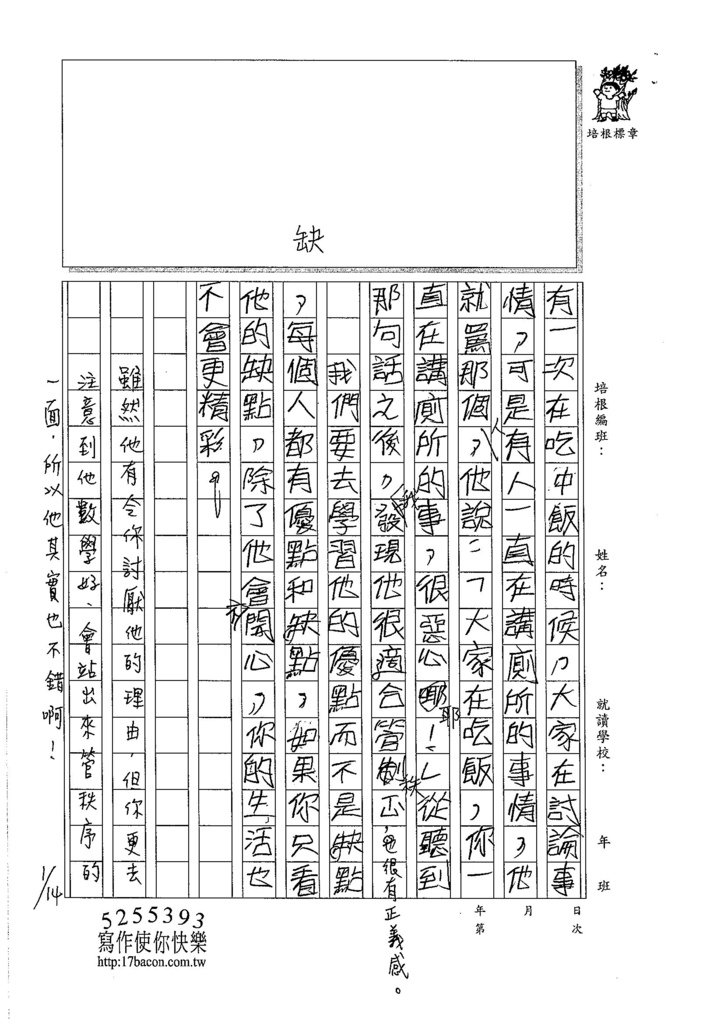 培根標章
缺
培根編班：
姓名：
就讀學校：
年 班
年 月 日
第 次
有一次在吃中飯的時候，大家在討論事
情，可是有人一直在講廁所的事情，他
就罵那個人，他說：「大家在吃飯，你一
直在講廁所的事，很惡心耶！」從聽到
那句話之後，我發現他很適合管秩
也很有正義感。
我們要去學習他的優點而不是缺點
，每個人都有優點和缺點，如果你只看
他的缺點，除了他會不開心，你的生活也
不會更精彩。
雖然他有令你討厭他的理由，但你更去
注意到他數學好、會站出來管秩序的
一面，所以他其實也不錯啊！
1/14
5255393
寫作使你快樂
http:17bacon.com.tw